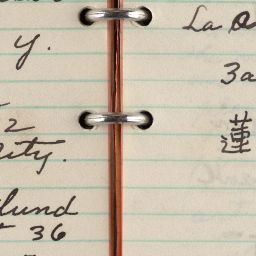 y.
2
ity.
lund
36
La
3a
蓮